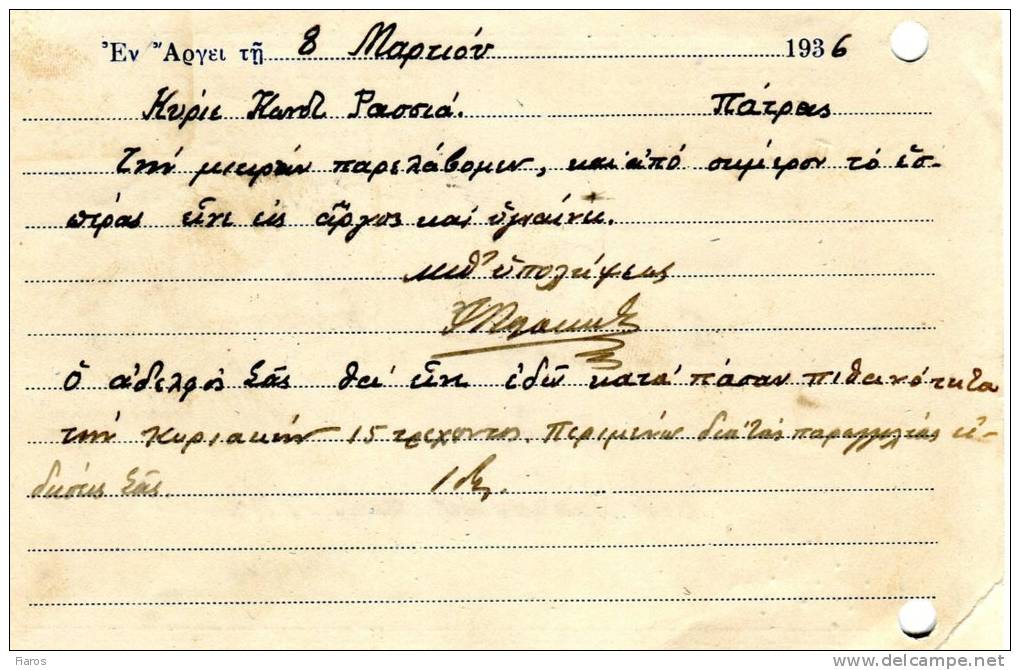 Ἐν Ἄργει τῇ 8 Μαρτίου 1936
Κύριε Κωνστ Ρασσιά. Πάτρας
Τήν μικράν παρελάβομεν, καί ἀπό σήμερον τό ἑσ-
πέρας εἶνε εἰς ἄργος καί ὑγιαίνει.
μεθ' ὑπολήψεως
Ὁ ἀδελφός Σᾶς θά εἶνε ἐδῶ κατά πᾶσαν πιθανότητα
τήν Κυριακήν 15 τρέχοντος. Περιμένω διά τάς παραγγελίας εἰ-
δήσεις Σᾶς.
Fiaros
www.delcampe.net